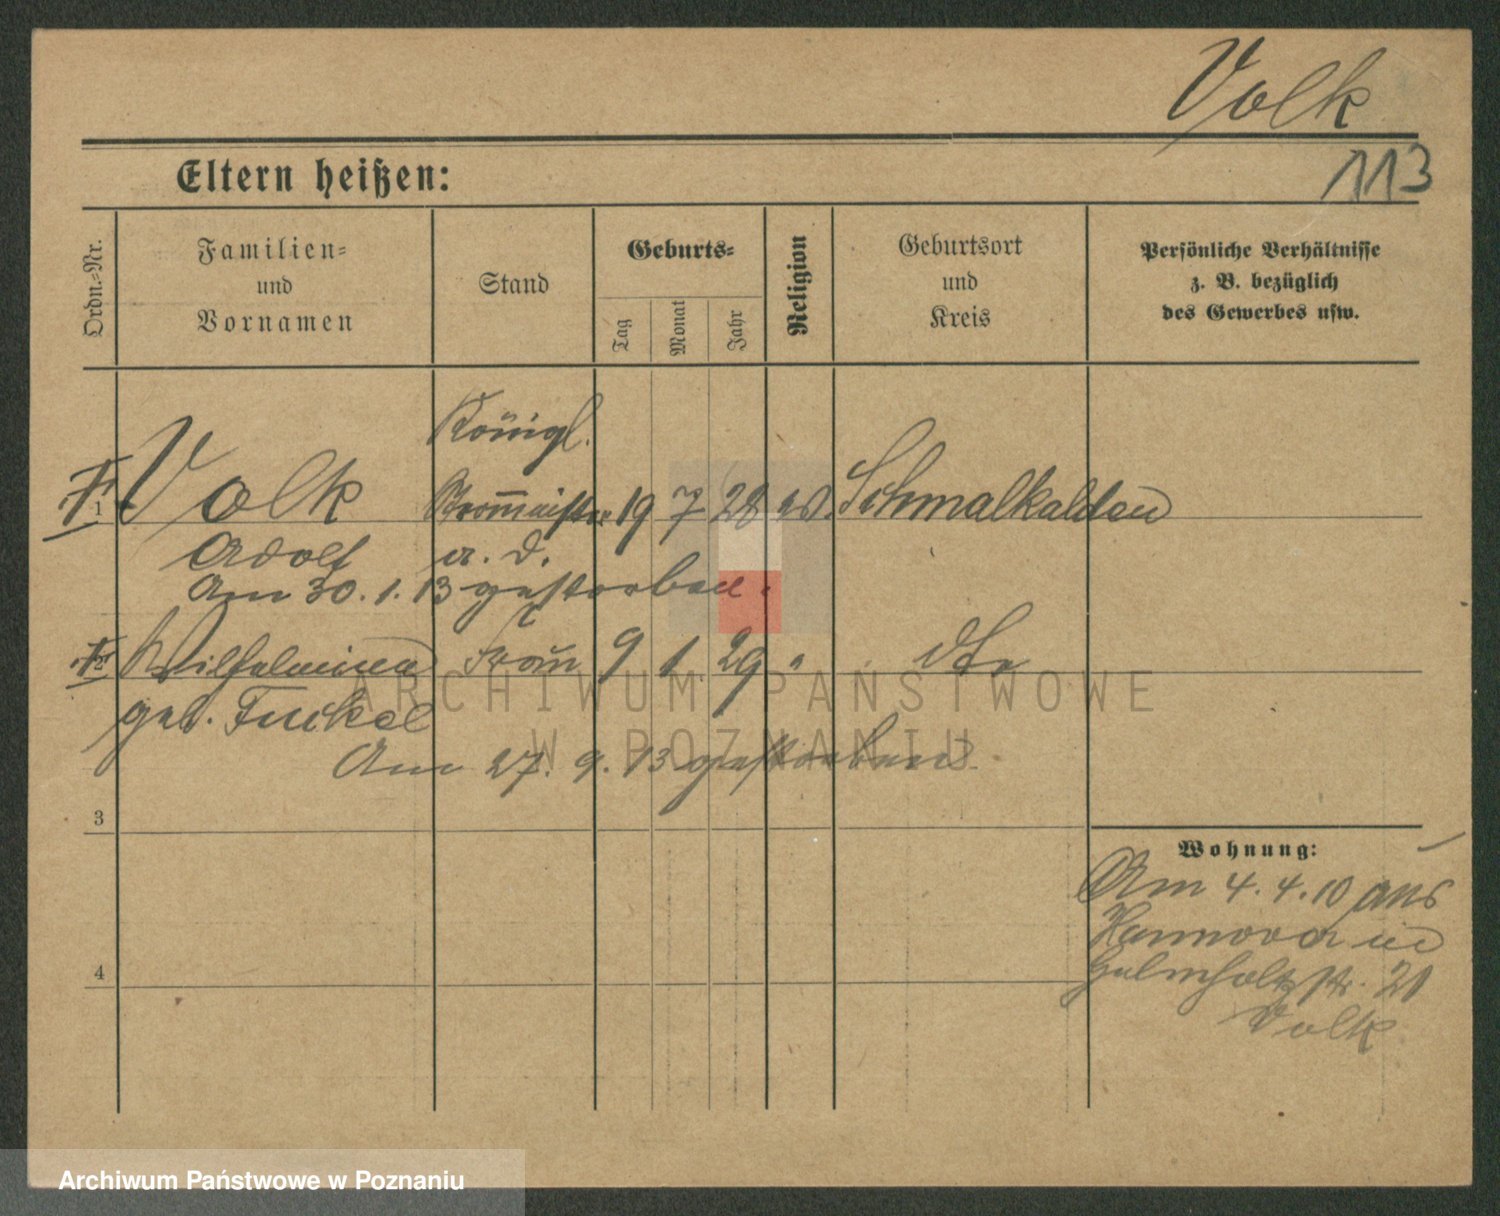 Volk
113
Eltern heißen:
Ordn.-Nr.
Familien-
und
Vornamen
Stand
Geburts-
Tag
Monat
Jahr
Religion
Geburtsort
und
Kreis
Persönliche Verhältnisse
z. B. bezüglich
des Gewerbes usw.
Königl.
1 Volk 19 7 28 Schmalkalden
Adolf a. D.
Am 30. 1. 13 gestorben.
2 Wilhelmine Frau 9 1. 29 " dto
geb. Funkel
Am 27. 9. 13 gestorben
3
4
Wohnung:
Am 4. 4. 10 aus
Hannover in
Helmholtzstr. 21
Volk
ARCHIWUM PAŃSTWOWE
W POZNANIU
Archiwum Państwowe w Poznaniu